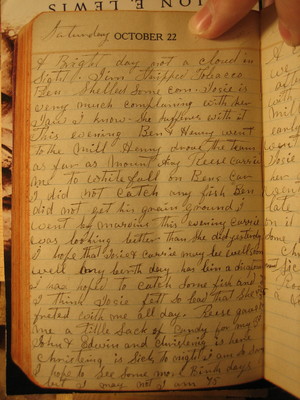 ON E. LEWIS
Saturday
OCTOBER 22
A Bright day not a cloud in
Sight. Jim Stripped Tobacco
Ben Shelled some corn. Josie is
very much complaining with her
I know She suffers with it
This evening Ben & Henry went
to the Mill Henry drove the team
as far as Mount Airy Reese carried
me to Whitefall on Bens Car
I did not catch any fish Ben
did not get his grain ground I
went by this evening Carrie
was looking better than She did yesterday
I hope that Josie & Carrie may be well soon
well my birth day has been a
I was hoped to catch some fish and
I think Josie felt so bad that She
fretted with me all day. Reese gave
me a little Sack of Candy for my
John & Edwin and Christine is here
Christine is Sick to night I am so sorry
I hope to See Some more Birth days
but I may not I am 75